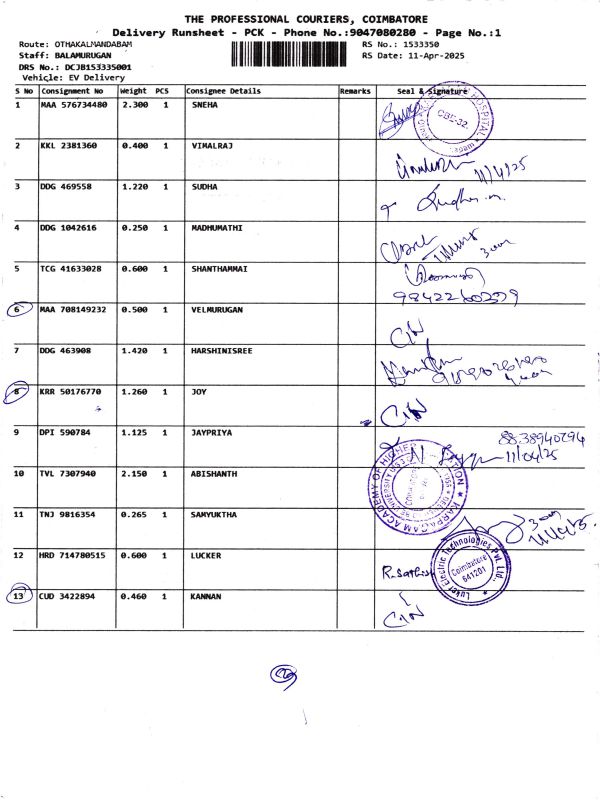 THE PROFESSIONAL COURIERS, COIMBATORE
Delivery Runsheet - PCK - Phone No.:9047080280 - Page No.:1
Route: OTHAKALMANDABAM RS No.: 1533350
Staff: BALAMURUGAN RS Date: 11-Apr-2025
DRS No.: DCJB153335001
Vehicle: EV Delivery
S No Consignment No Weight PCS Consignee Details Remarks Seal & Signature
1 MAA 576734480 2.300 1 SNEHA
HOSPITAL
CBE-32.
2 KKL 2381360 0.400 1 VIMALRAJ
11/4/25
3 DDG 469558 1.220 1 SUDHA
4 DDG 1042616 0.250 1 MADHUMATHI
5 TCG 41633028 0.600 1 SHANTHAMMAI
9842260279
6 MAA 708149232 0.500 1 VELMURUGAN
C/N
7 DDG 463908 1.420 1 HARSHINISREE
8 KRR 50176770 1.260 1 JOY
C/N
9 DPI 590784 1.125 1 JAYPRIYA
8838940294
11/04/25
10 TVL 7307940 2.150 1 ABISHANTH
KARPAGAM ACADEMY OF HIGHER EDUCATION
11 TNJ 9816354 0.265 1 SAMYUKTHA
12 HRD 714780515 0.600 1 LUCKER
R. Sathish
Luker Electric Technologies Pvt. Ltd.
Coimbatore
641201
13 CUD 3422894 0.460 1 KANNAN
C/N